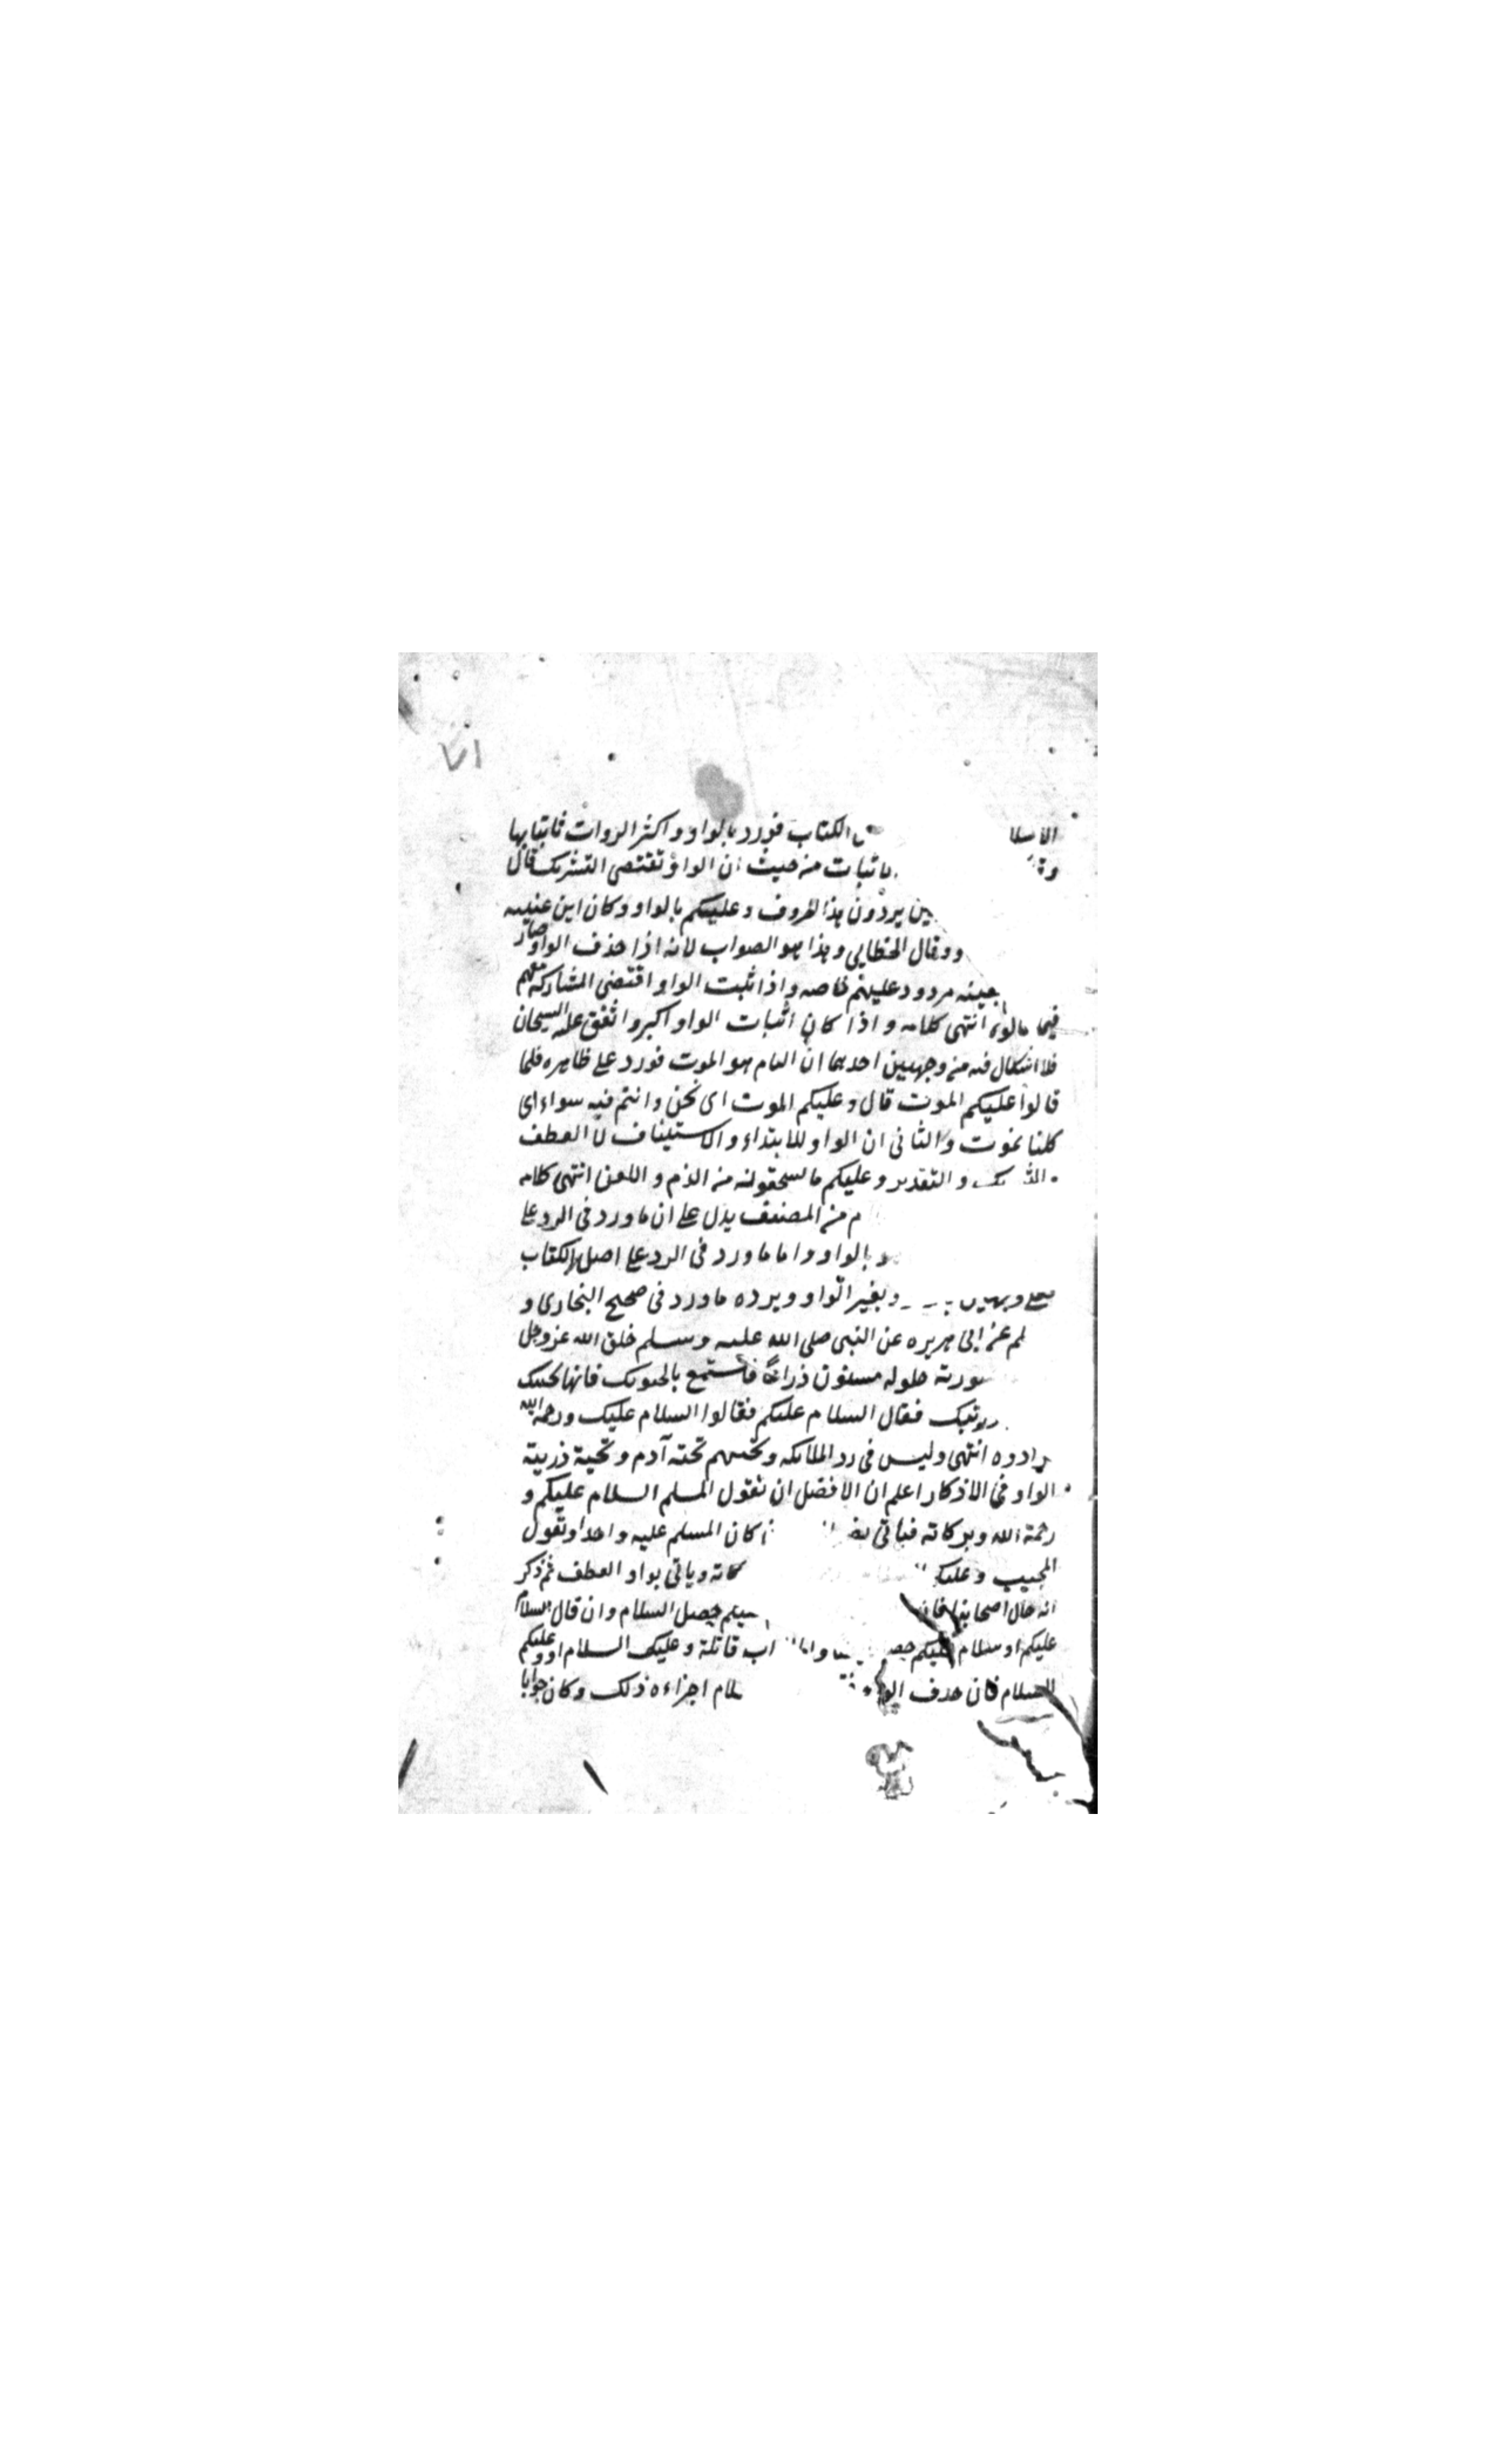 ١٧١
الاسلا الكتاب فورد بالواو واكثر الروات فاثباتها
باثبات من حيث ان الواو تقتضى التشريك قال
يردون هذا الحروف وعليكم بالواو وكان ابن عيينه
وقال الخطابي وهذا هو الصواب لانه اذا حذف الواو صار
بعينه مردود عليهم خاصه واذا ثبت الواو اقتضى المشاركة معهم
فيما قالوه انتهى كلامه واذا كان اثبات الواو اكبر واتفق عليه الشيخان
فلا اشكال فيه من وجهين احدهما ان السام هو الموت فورد على ظاهره فلما
قالوا عليكم الموت قال وعليكم الموت اى نحن وانتم فيه سواء اى
كلنا نموت والثانى ان الواو للابتداء والاستيناف لا العطف
والتقدير وعليكم ما تستحقونه من الذم واللعن انتهى كلامه
من المصنف يدل على ان ما ورد فى الرد على
بالواو واما ما ورد فى الرد على اهل الكتاب
وبغير الواو ويرده ما ورد فى صحيح البخارى و
عن ابى هريره عن النبى صلى الله عليه وسلم خلق الله عز وجل
صورته طوله ستون ذراعا فاستمع ما يحيونك فانها تحيتك
فقال السلام عليكم فقالوا السلام عليك ورحمة الله
زادوه انتهى وليس فى رد الملائكه وتحيتهم تحية آدم وتحية ذريته
الواو فى الاذكار اعلم ان الافضل ان تقول المسلم السلام عليكم و
رحمة الله وبركاته فياتى كان المسلم عليه واحدا وتقول
المجيب وعليكم وياتى بواو العطف ثم ذكر
انه قال اصحابنا فان حصل السلام وان قال السلام
عليكم او سلام عليكم قائلة وعليك السلام او وعليكم
السلام فان حذف الواو اجزاءه ذلك وكان جوابا